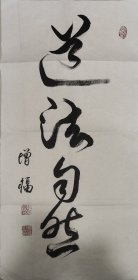 道法自然
增福